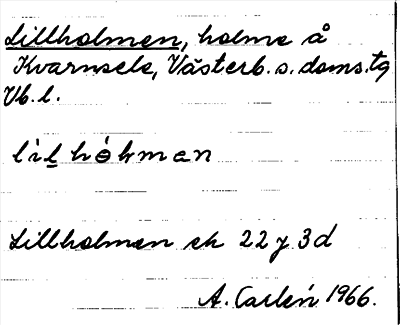 Lillholmen, holme å
Kvarnsele, Västerb. s. doms. tg
Vb. l.
Lillholmen ek 22 J 3d
A. Carlén 1966.